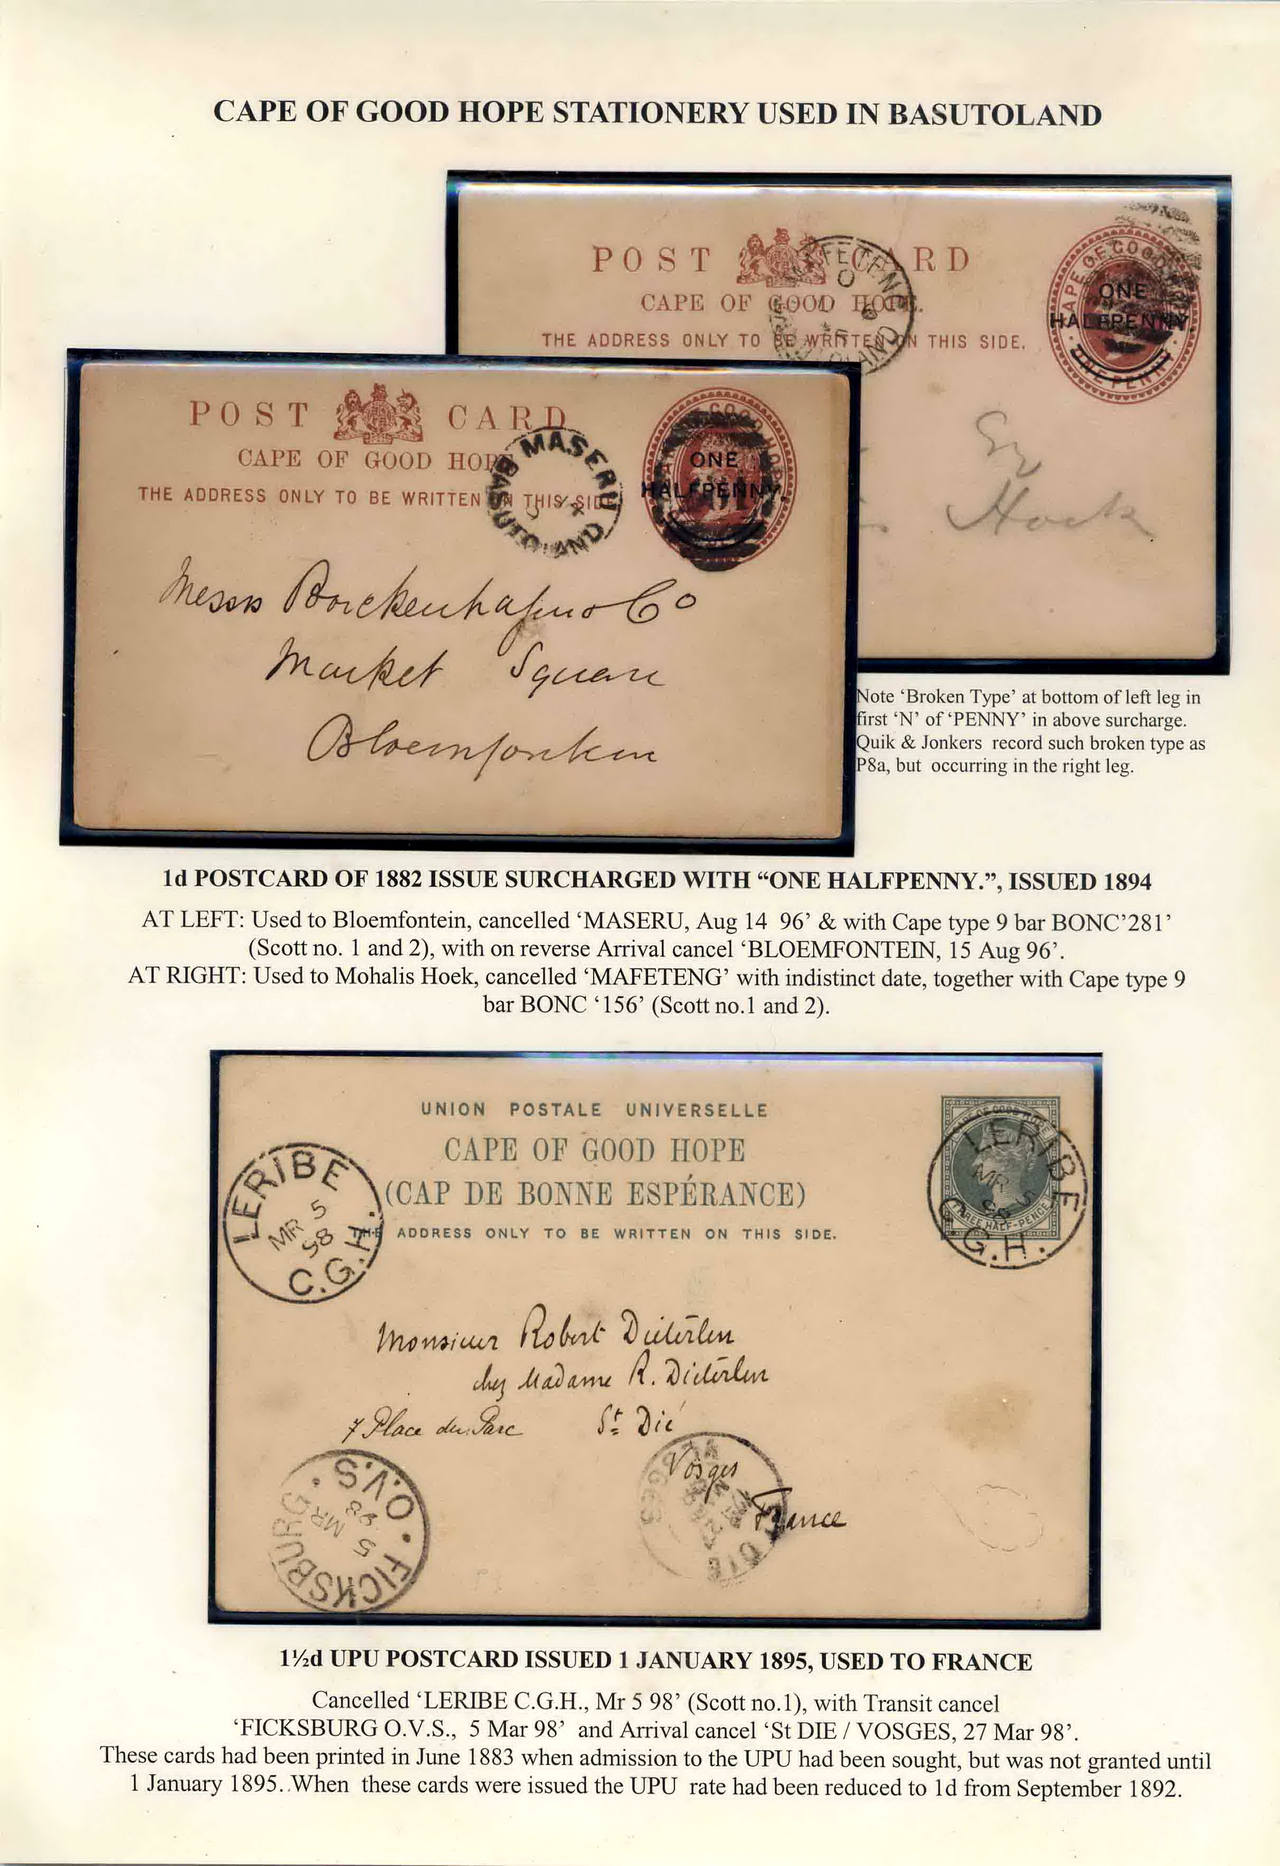 CAPE OF GOOD HOPE STATIONERY USED IN BASUTOLAND
POST CARD
CAPE OF GOOD HOPE.
THE ADDRESS ONLY TO BE WRITTEN ON THIS SIDE.
CAPE OF GOOD
ONE
HALFPENNY.
ONE PENNY
Hoek
POST CARD
CAPE OF GOOD HOPE
THE ADDRESS ONLY TO BE WRITTEN ON THIS SIDE
MASERU
BASUTOLAND
ONE
HALFPENNY.
Messrs Borckenhagen & Co
Market Square
Bloemfontein
Note ‘Broken Type’ at bottom of left leg in
first ‘N’ of ‘PENNY’ in above surcharge.
Quik & Jonkers record such broken type as
P8a, but occurring in the right leg.
1d POSTCARD OF 1882 ISSUE SURCHARGED WITH “ONE HALFPENNY.”, ISSUED 1894
AT LEFT: Used to Bloemfontein, cancelled ‘MASERU, Aug 14 96’ & with Cape type 9 bar BONC’281’
(Scott no. 1 and 2), with on reverse Arrival cancel ‘BLOEMFONTEIN, 15 Aug 96’.
AT RIGHT: Used to Mohalis Hoek, cancelled ‘MAFETENG’ with indistinct date, together with Cape type 9
bar BONC ‘156’ (Scott no.1 and 2).
UNION POSTALE UNIVERSELLE
CAPE OF GOOD HOPE
(CAP DE BONNE ESPÉRANCE)
THE ADDRESS ONLY TO BE WRITTEN ON THIS SIDE.
LERIBE
MR 5
98
C.G.H.
LERIBE
MR 5
98
C.G.H.
THREE HALF-PENCE
Monsieur Robert Dieterlen
chez Madame R. Dieterlen
7 Place du Parc St Dié
Vosges
France
FICKSBURG . O.V.S.
5 MR
98
1½d UPU POSTCARD ISSUED 1 JANUARY 1895, USED TO FRANCE
Cancelled ‘LERIBE C.G.H., Mr 5 98’ (Scott no.1), with Transit cancel
‘FICKSBURG O.V.S., 5 Mar 98’ and Arrival cancel ‘St DIE / VOSGES, 27 Mar 98’.
These cards had been printed in June 1883 when admission to the UPU had been sought, but was not granted until
1 January 1895. .When these cards were issued the UPU rate had been reduced to 1d from September 1892.